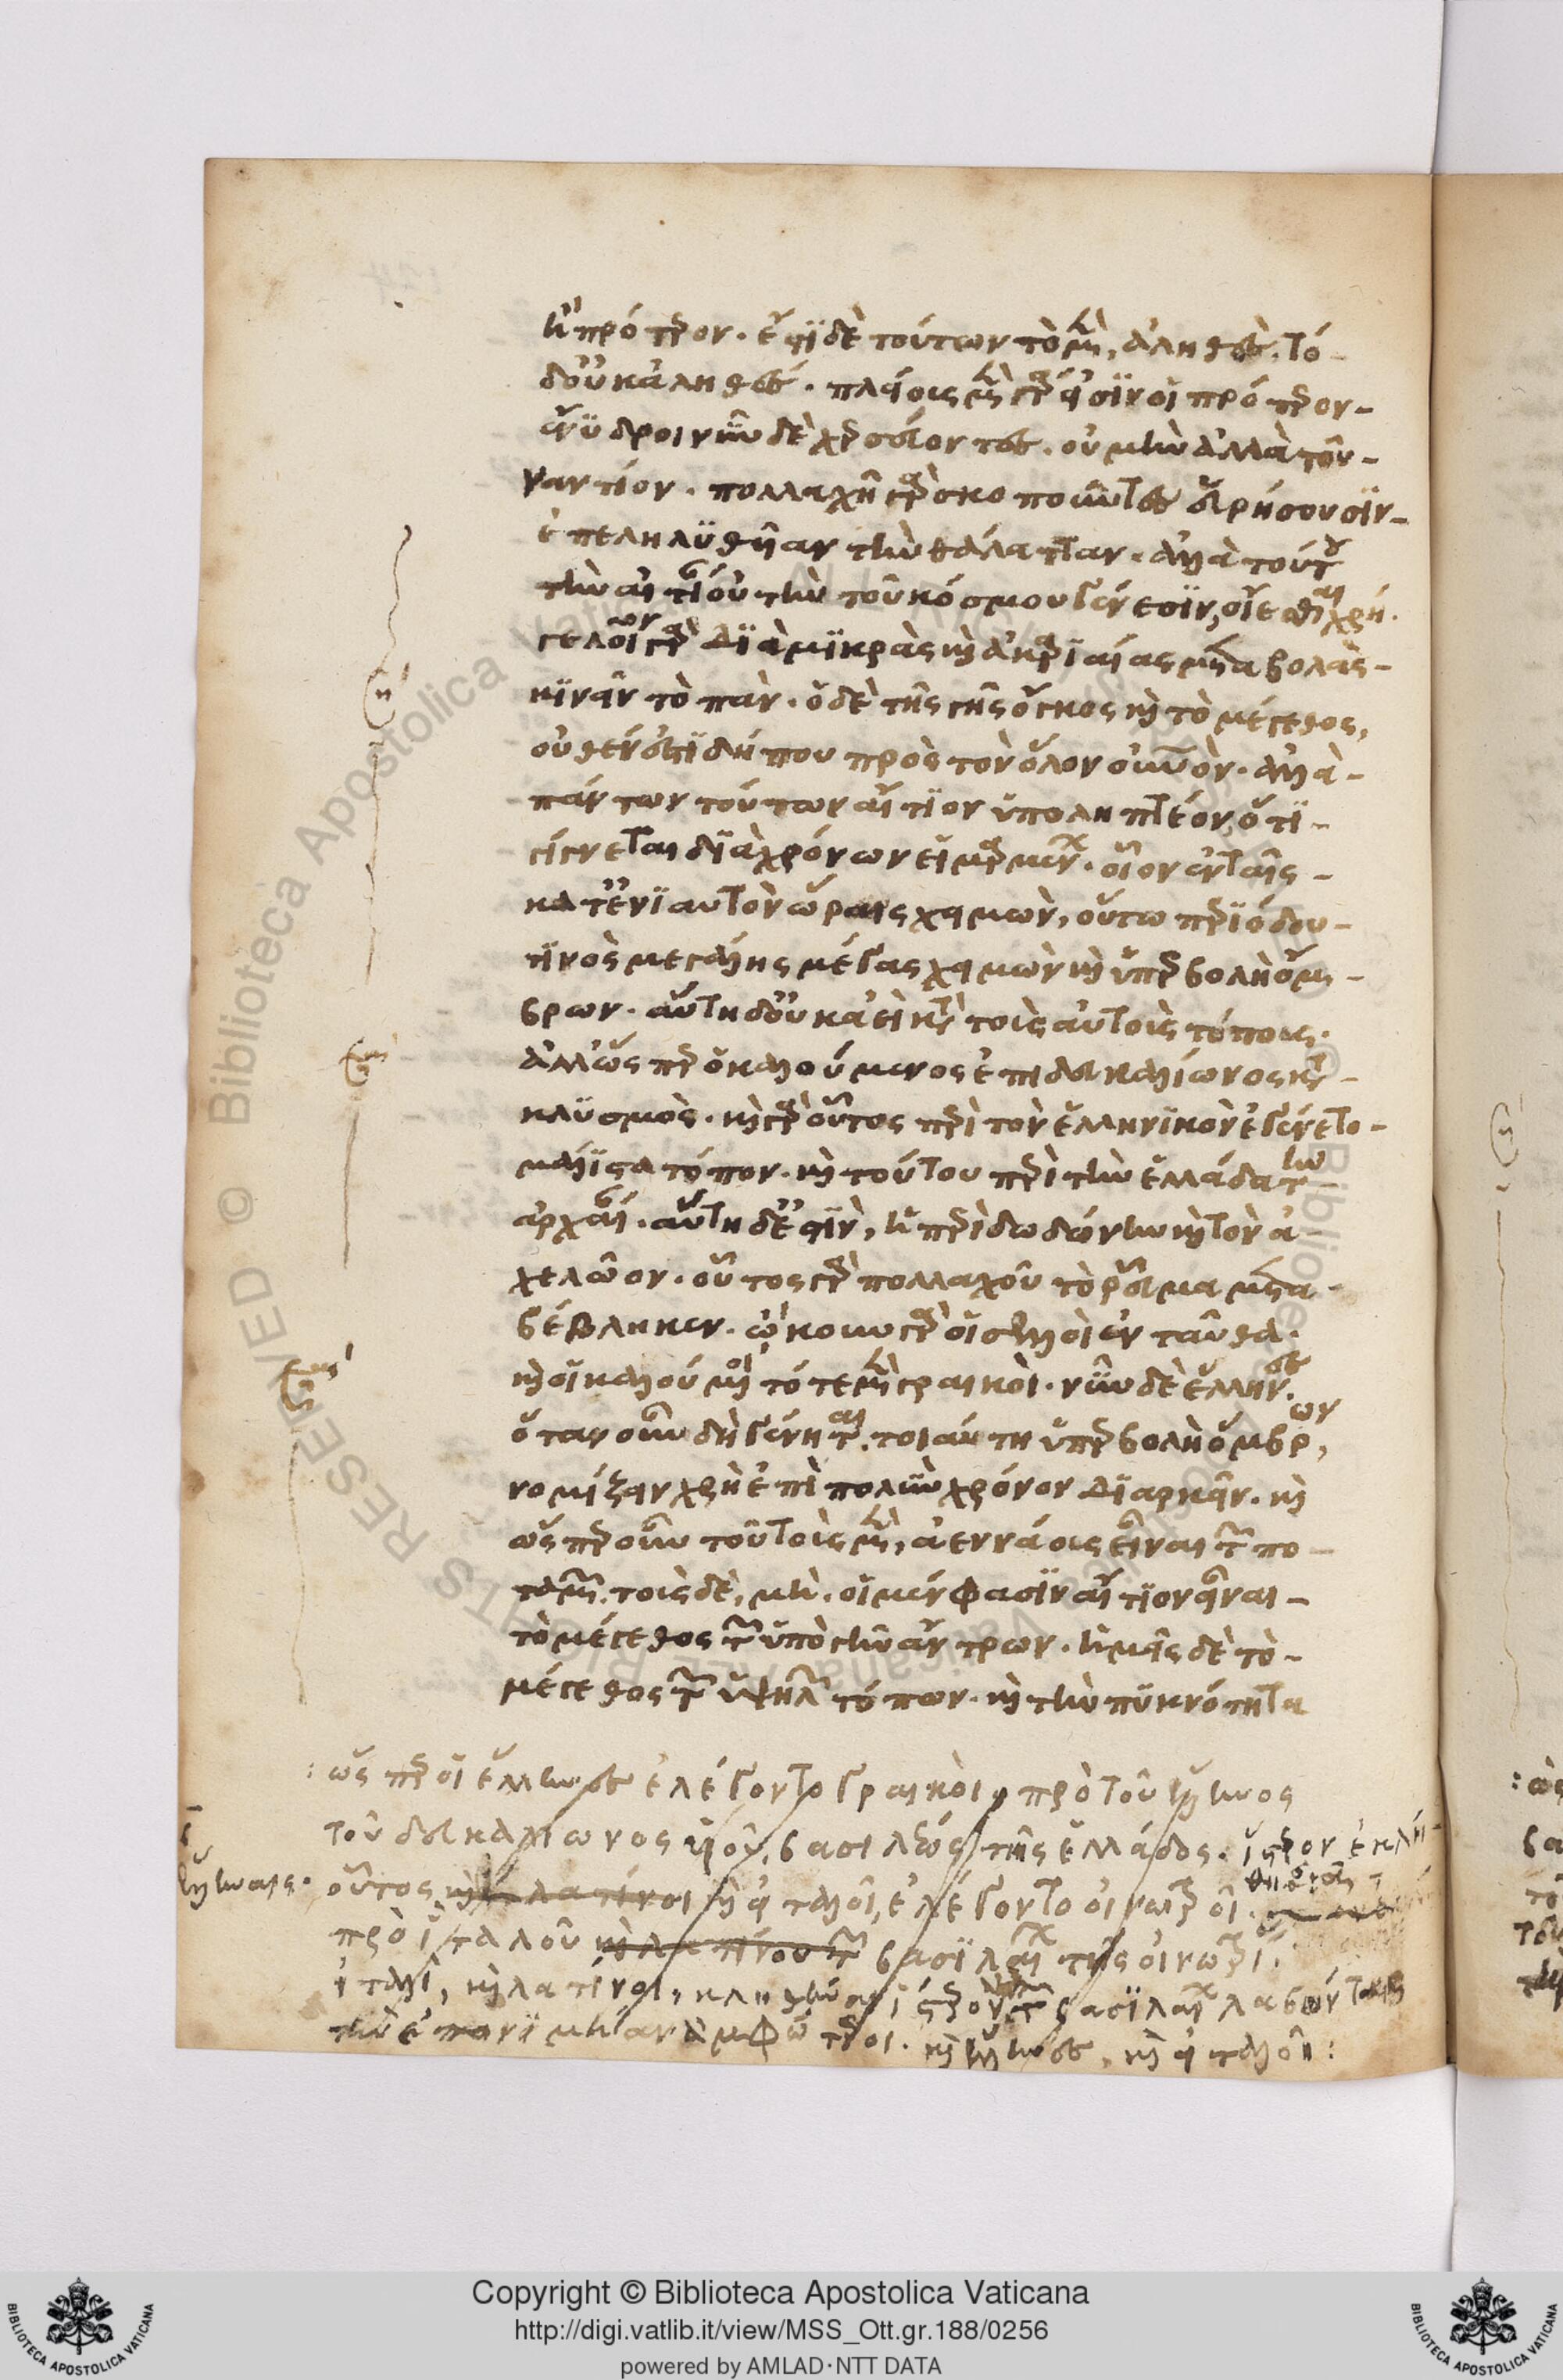 ἢ πρότερον. ἔστι δὲ τούτων τὸ μὲν, ἀληθὲς. τὸ
δ' οὐκ ἀληθές. πλείους μὲν γάρ εἰσιν οἱ πρότερον
ἔνυδροι νῦν δὲ χερσεύοντες. οὐ μὴν ἀλλὰ τοὐ
ναντίον. πολλαχῆ γὰρ σκοποῦντες εὑρήσουσιν
ἐπεληλυθυῖαν τὴν θάλατταν. ἀλλὰ τούτου
τὴν αἰτίαν οὐ τὴν τοῦ κόσμου γένεσιν, οἴεσθαι χρή.
γελοῖον γὰρ διὰ μικρὰς καὶ ἀκαριαίας μεταβολὰς
κινεῖν τὸ πᾶν. ὁ δὲ τῆς γῆς ὄγκος καὶ τὸ μέγεθος,
οὐθέν ἐστι δήπου πρὸς τὸν ὅλον οὐρανόν. ἀλλὰ
πάντων τούτων αἴτιον ὑποληπτέον, ὅτι
γίγνεται διὰ χρόνων εἱμαρμένων. οἷον ἐν ταῖς
κατ' ἐνιαυτὸν ὥραις χειμὼν, οὕτω περιόδου
τινὸς μεγάλης μέγας χειμὼν καὶ ὑπερβολὴ ὄμ
βρων. αὕτη δ' οὐκ ἀεὶ κατὰ τοὺς αὐτοὺς τόπους.
ἀλλ' ὥσπερ ὁ καλούμενος ἐπὶ δευκαλίωνος κατα
κλυσμὸς. καὶ γὰρ οὗτος περὶ τὸν ἑλληνικὸν ἐγένετο
μάλιστα τόπον. καὶ τούτου περὶ τὴν ἑλλάδα τὴν
ἀρχαίαν. αὕτη δ' ἐστὶν, ἡ περὶ δωδώνην καὶ τὸν ἀ
χελῶον. οὗτος γὰρ πολλαχοῦ τὸ ῥεῦμα μετα
βέβληκεν. ᾤκουν γὰρ οἱ σελλοὶ ἐνταῦθα.
καὶ οἱ καλούμενοι τότε μὲν γραικοὶ. νῦν δὲ ἕλληνες.
ὅταν οὖν δὴ γένηται τοιαύτη ὑπερβολὴ ὄμβρων,
νομίζειν χρὴ ἐπὶ πολὺν χρόνον διαρκεῖν. καὶ
ὥσπερ οὖν τοῦ τοὺς μὲν, ἀεννάους εἶναι τῶν πο
ταμῶν. τοὺς δὲ, μὴ. οἱ μέν φασιν αἴτιον εἶναι
τὸ μέγεθος τῶν ὑπὸ γῆν ἄντρων. ἡμεῖς δὲ τὸ
μέγεθος τῶν ὑψηλῶν τόπων. καὶ τὴν πυκνότητα
: ὥσπερ οἱ ἕλληνες ἐλέγοντο γραικοὶ, πρὸ τοῦ ἕλληνος
τοῦ δευκαλίωνος υἱοῦ, βασιλέως τῆς ἑλλάδος. ὕστερον ἐκλή
θησαν
ἕλληνες. οὕτως καὶ λατίνοι καὶ εἰταλοὶ, ἐλέγοντο οἰνωτροὶ.
πρὸ ἰταλοῦ καὶ λατίνου τῶν βασιλέων τῆς οἰνωτρίας.
ἰταλοὶ, καὶ λατίνοι, κληθῆναι ὕστερον βασιλέων λαβόντες
τὴν ἐπωνυμίαν ἀμφότεροι. καὶ ἕλληνες, καὶ εἰταλοὶ:
Copyright © Biblioteca Apostolica Vaticana
http://digi.vatlib.it/view/MSS_Ott.gr.188/0256
powered by AMLAD·NTT DATA